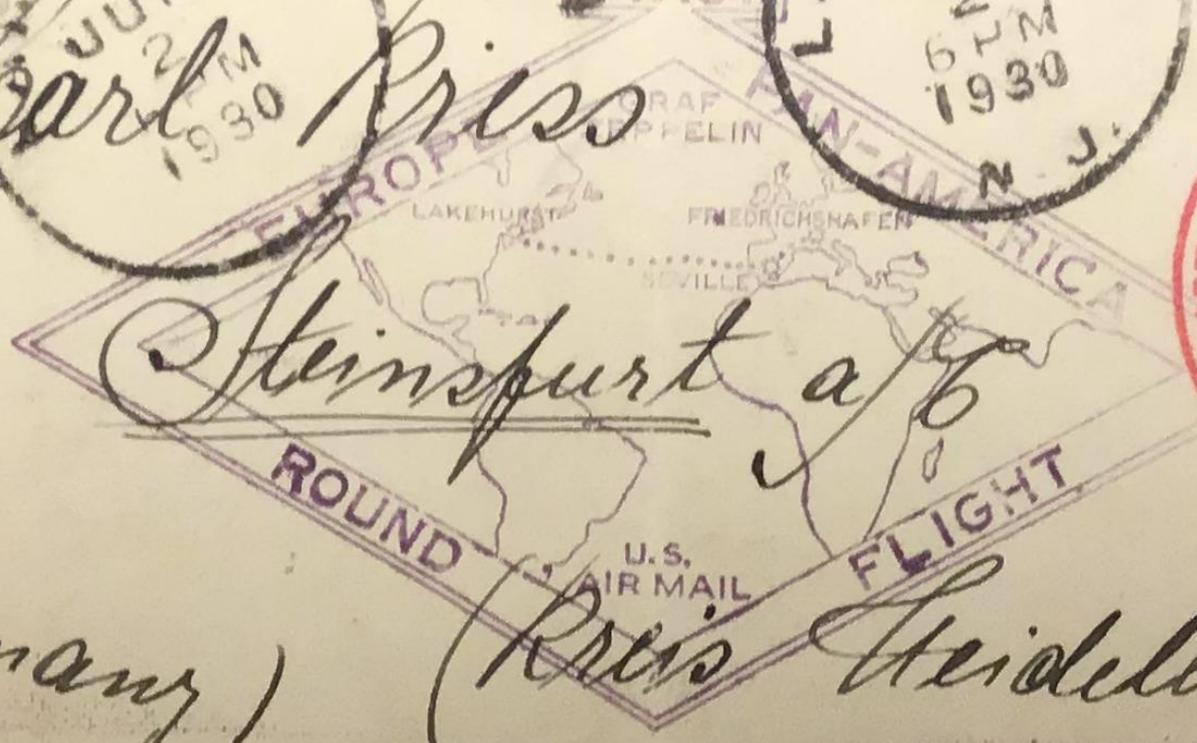 JUN
2
PM
1930
2
6 PM
1930
N. J.
Karl Kriss
GRAF
ZEPPELIN
EUROPE PAN-AMERICA
LAKEHURST FRIEDRICHSHAFEN
SEVILLE
Steinsfurt a/E
ROUND FLIGHT
U.S.
AIR MAIL
many) (Kreis Heidel